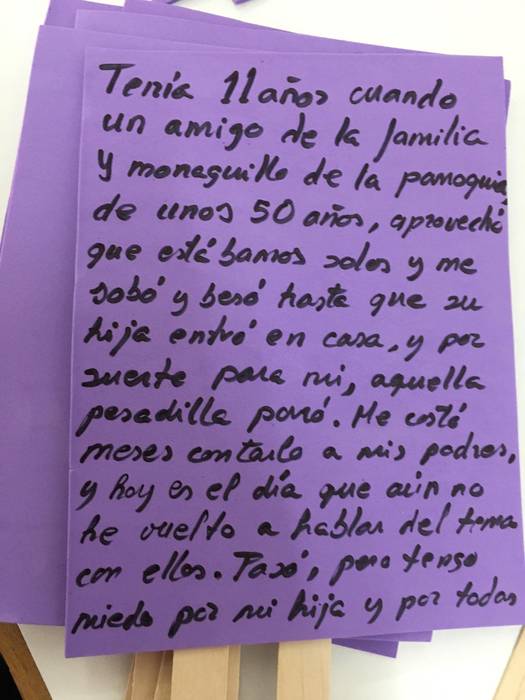 Tenía 11 años cuando
un amigo de la familia
y monaguillo de la parroquia,
de unos 50 años, aprovechó
que estábamos solos y me
sobó y besó hasta que su
hija entró en casa, y por
suerte para mi, aquella
pesadilla paró. Me costó
meses contarlo a mis padres,
y hoy es el día que aún no
he vuelto a hablar del tema
con ellos. Pasó, pero tengo
miedo por mi hija y por todas